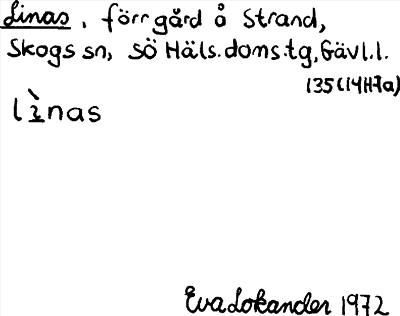 Linas, förr gård å Strand,
Skogs sn, sö Häls.doms.tg, Gävl.l.
135 (14H7a)
lìnas
Eva Lokander 1972